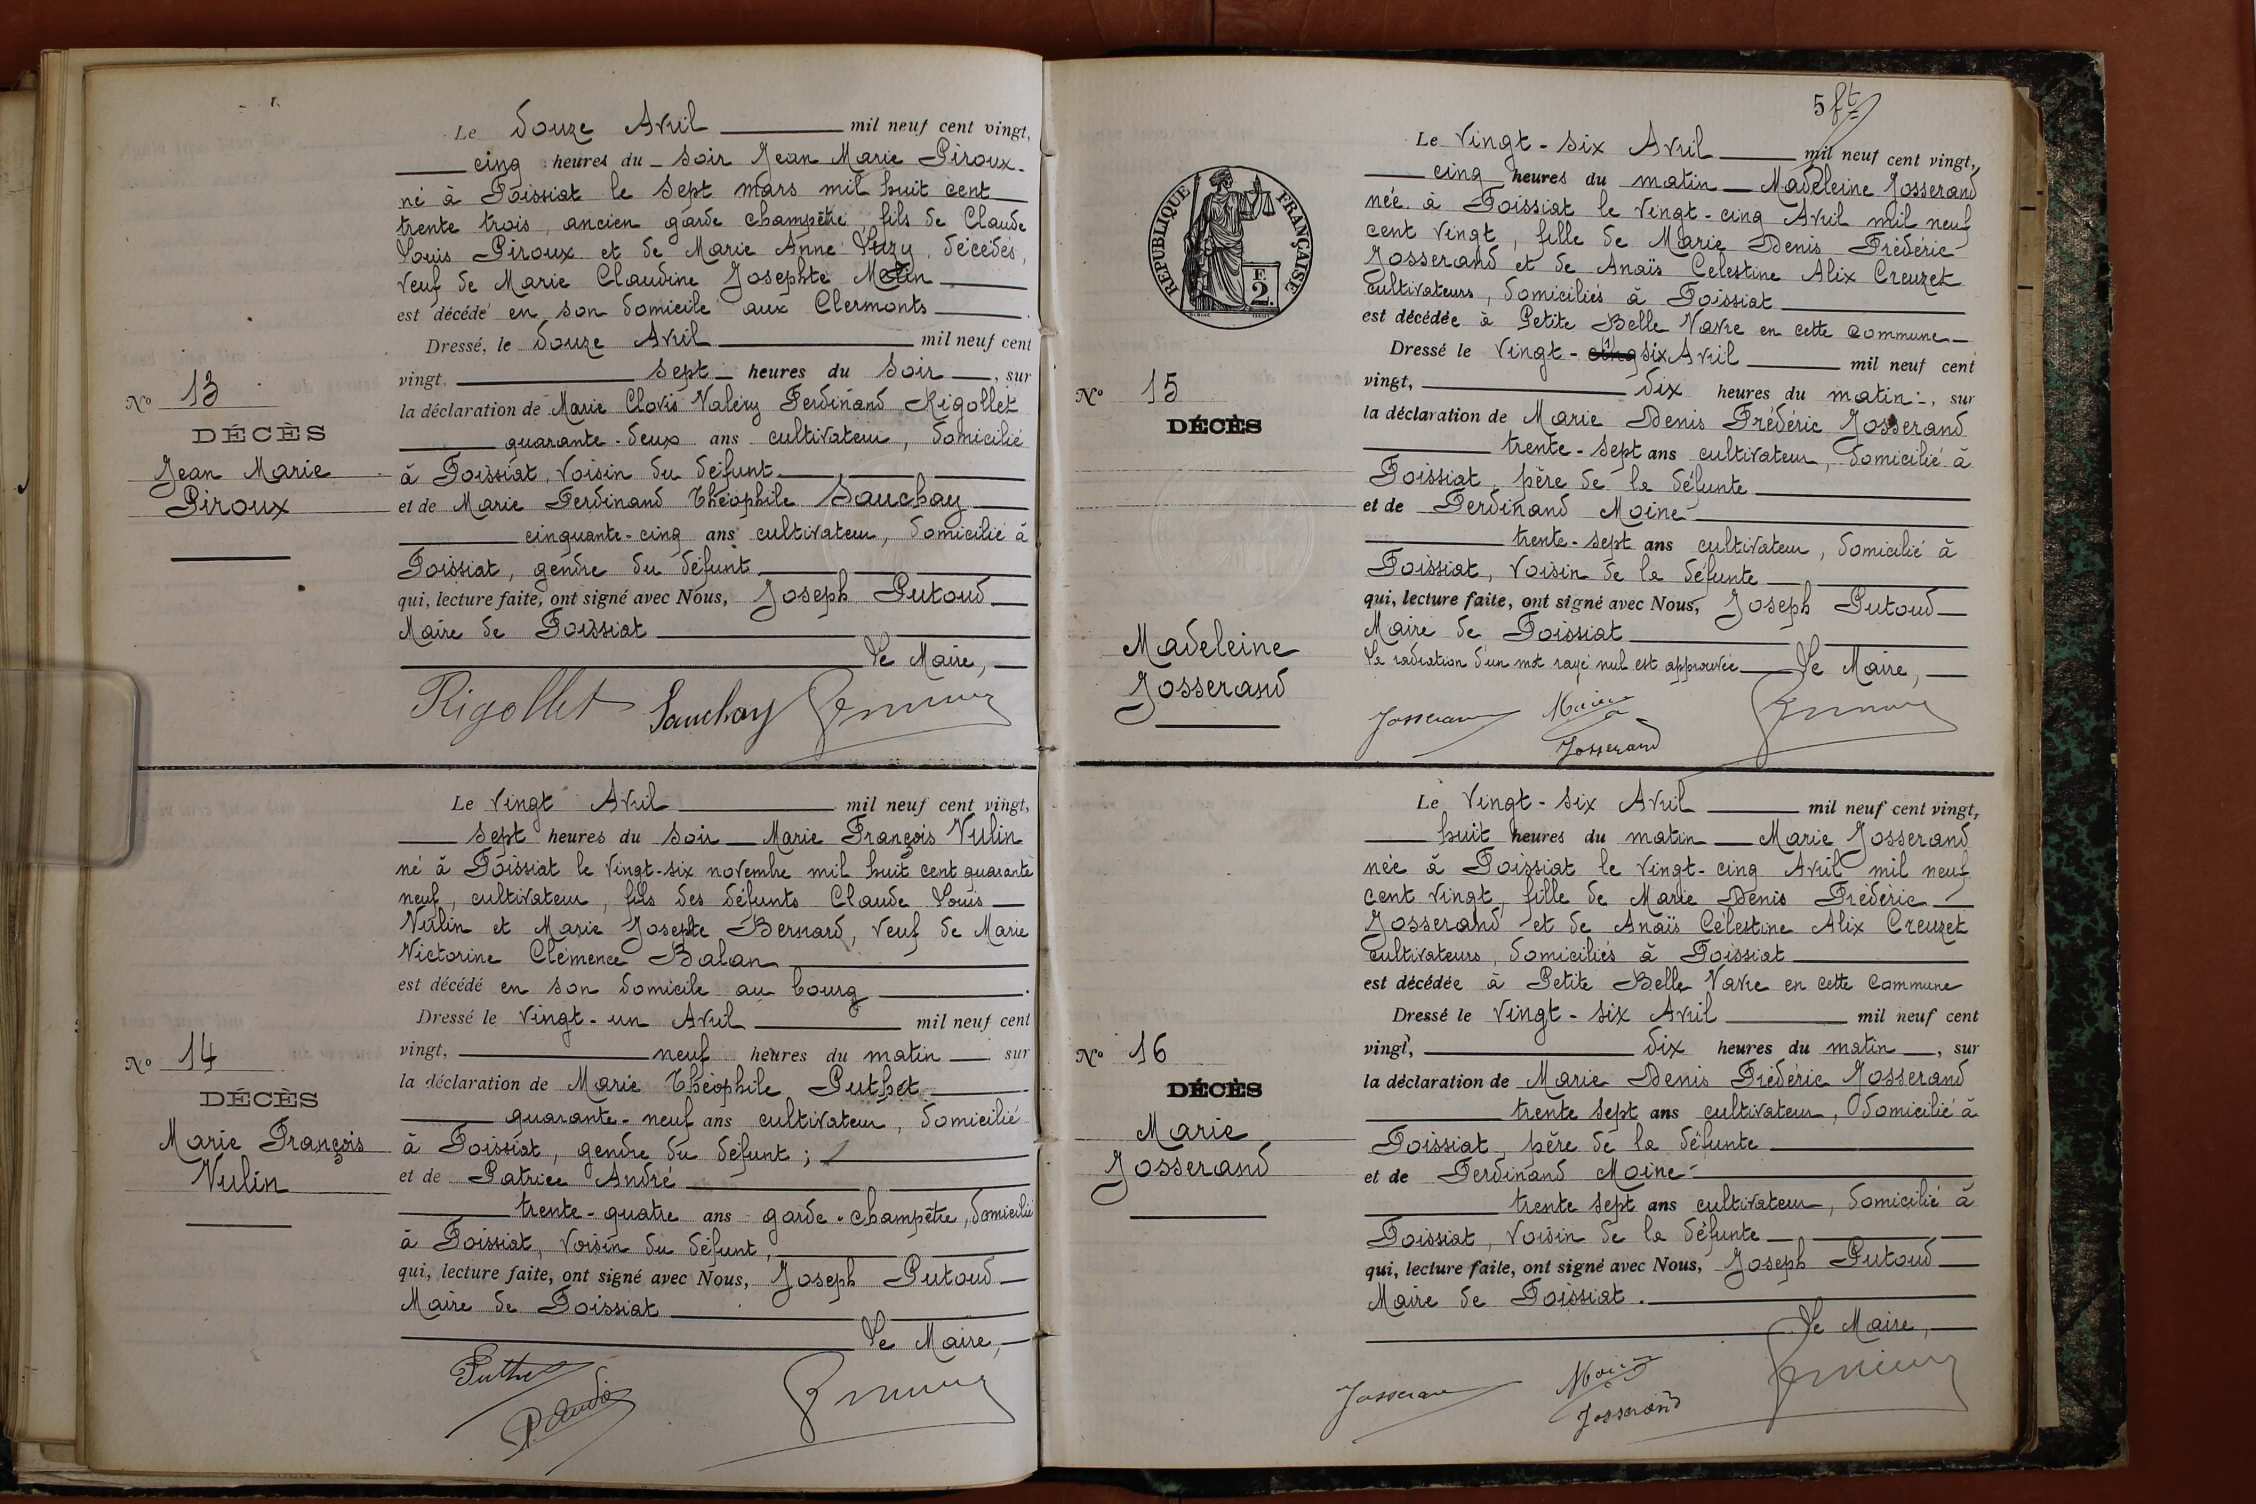 Le douze Avril mil neuf cent vingt,
cinq heures du soir Jean Marie Piroux
né à Foissiat le sept mars mil huit cent
trente trois, ancien garde champêtre, fils de Claude
Louis Piroux et de Marie Anne Luzy, décédés,
veuf de Marie Claudine Josephte
est décédé en son domicile aux Clermonts
Dressé, le douze Avril mil neuf cent
vingt, sept heures du soir, sur
la déclaration de Marie Clovis Valéry Ferdinand Rigollet
quarante-deux ans cultivateur, domicilié
à Foissiat, voisin du défunt
et de Marie Ferdinand Théophile Sauchay
cinquante-cinq ans cultivateur, domicilié à
Foissiat, gendre du défunt
qui, lecture faite, ont signé avec Nous, Joseph Putoud
Maire de Foissiat
Le Maire,
Rigollet Sauchay
No 13
DÉCÈS
Jean Marie
Piroux
Le vingt Avril mil neuf cent vingt,
sept heures du soir Marie François Vulin
né à Foissiat le vingt-six novembre mil huit cent quarante
neuf, cultivateur, fils des défunts Claude Louis
Vulin et Marie Josephte Bernard, veuf de Marie
Victorine Clémence Balan
est décédé en son domicile au bourg.
Dressé le vingt-un Avril mil neuf cent
vingt, neuf heures du matin sur
la déclaration de Marie Théophile Puthet
quarante-neuf ans cultivateur, domicilié
à Foissiat, gendre du défunt;
et de Patrice André
trente-quatre ans garde-champêtre, domicilié
à Foissiat, voisin du défunt,
qui, lecture faite, ont signé avec Nous, Joseph Putoud
Maire de Foissiat
Le Maire,
P André
No 14
DÉCÈS
Marie François
Vulin
5 ft
RÉPUBLIQUE FRANÇAISE
F.
2
Le vingt-six Avril mil neuf cent vingt,
cinq heures du matin Madeleine Josserand
née à Foissiat le vingt-cinq Avril mil neuf
cent vingt, fille de Marie Denis Frédéric
Josserand et de Anaïs Célestine Alix Creuzet
cultivateurs, domiciliés à Foissiat
est décédée à Petite Belle Vavre en cette commune
Dressé le vingt-cinq six Avril mil neuf cent
vingt, dix heures du matin, sur
la déclaration de Marie Denis Frédéric Josserand
trente-sept ans cultivateur, domicilié à
Foissiat, père de la défunte
et de Ferdinand Moine
trente-sept ans cultivateur, domicilié à
Foissiat, voisin de la défunte
qui, lecture faite, ont signé avec Nous, Joseph Putoud
Maire de Foissiat
La radiation d'un mot rayé nul est approuvée Le Maire,
Josserand Moine
Josserand
No 15
DÉCÈS
Madeleine
Josserand
Le vingt-six Avril mil neuf cent vingt,
huit heures du matin Marie Josserand
née à Foissiat le vingt-cinq Avril mil neuf
cent vingt, fille de Marie Denis Frédéric
Josserand et de Anaïs Célestine Alix Creuzet
cultivateurs, domiciliés à Foissiat
est décédée à Petite Belle Vavre en cette commune
Dressé le vingt-six Avril mil neuf cent
vingt, dix heures du matin, sur
la déclaration de Marie Denis Frédéric Josserand
trente sept ans cultivateur, domicilié à
Foissiat, père de la défunte
et de Ferdinand Moine
trente sept ans cultivateur, domicilié à
Foissiat, voisin de la défunte
qui, lecture faite, ont signé avec Nous, Joseph Putoud
Maire de Foissiat.
Le Maire,
Josserand Moine
Josserand
No 16
DÉCÈS
Marie
Josserand